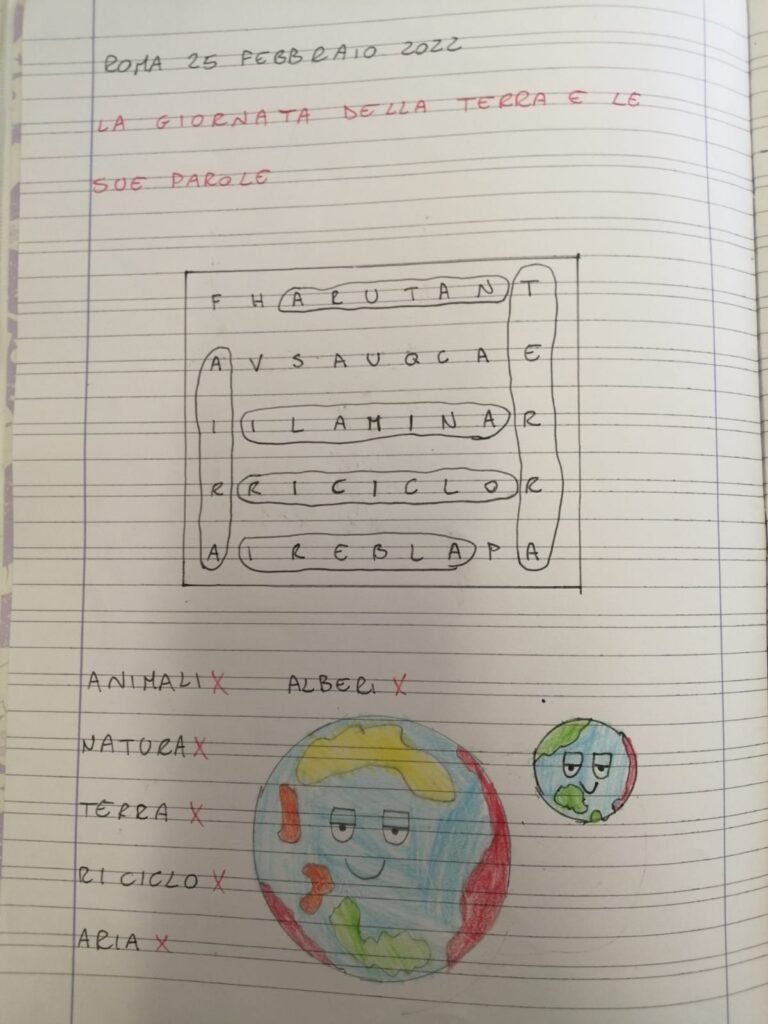 ROMA 25 FEBBRAIO 2022
LA GIORNATA DELLA TERRA E LE
SUE PAROLE
F H A R U T A N T
A V S A U Q C A E
I I L A M I N A R
R R I C I C L O R
A I R E B L A P A
ANIMALI X ALBERI X
NATURA X
TERRA X
RICICLO X
ARIA X